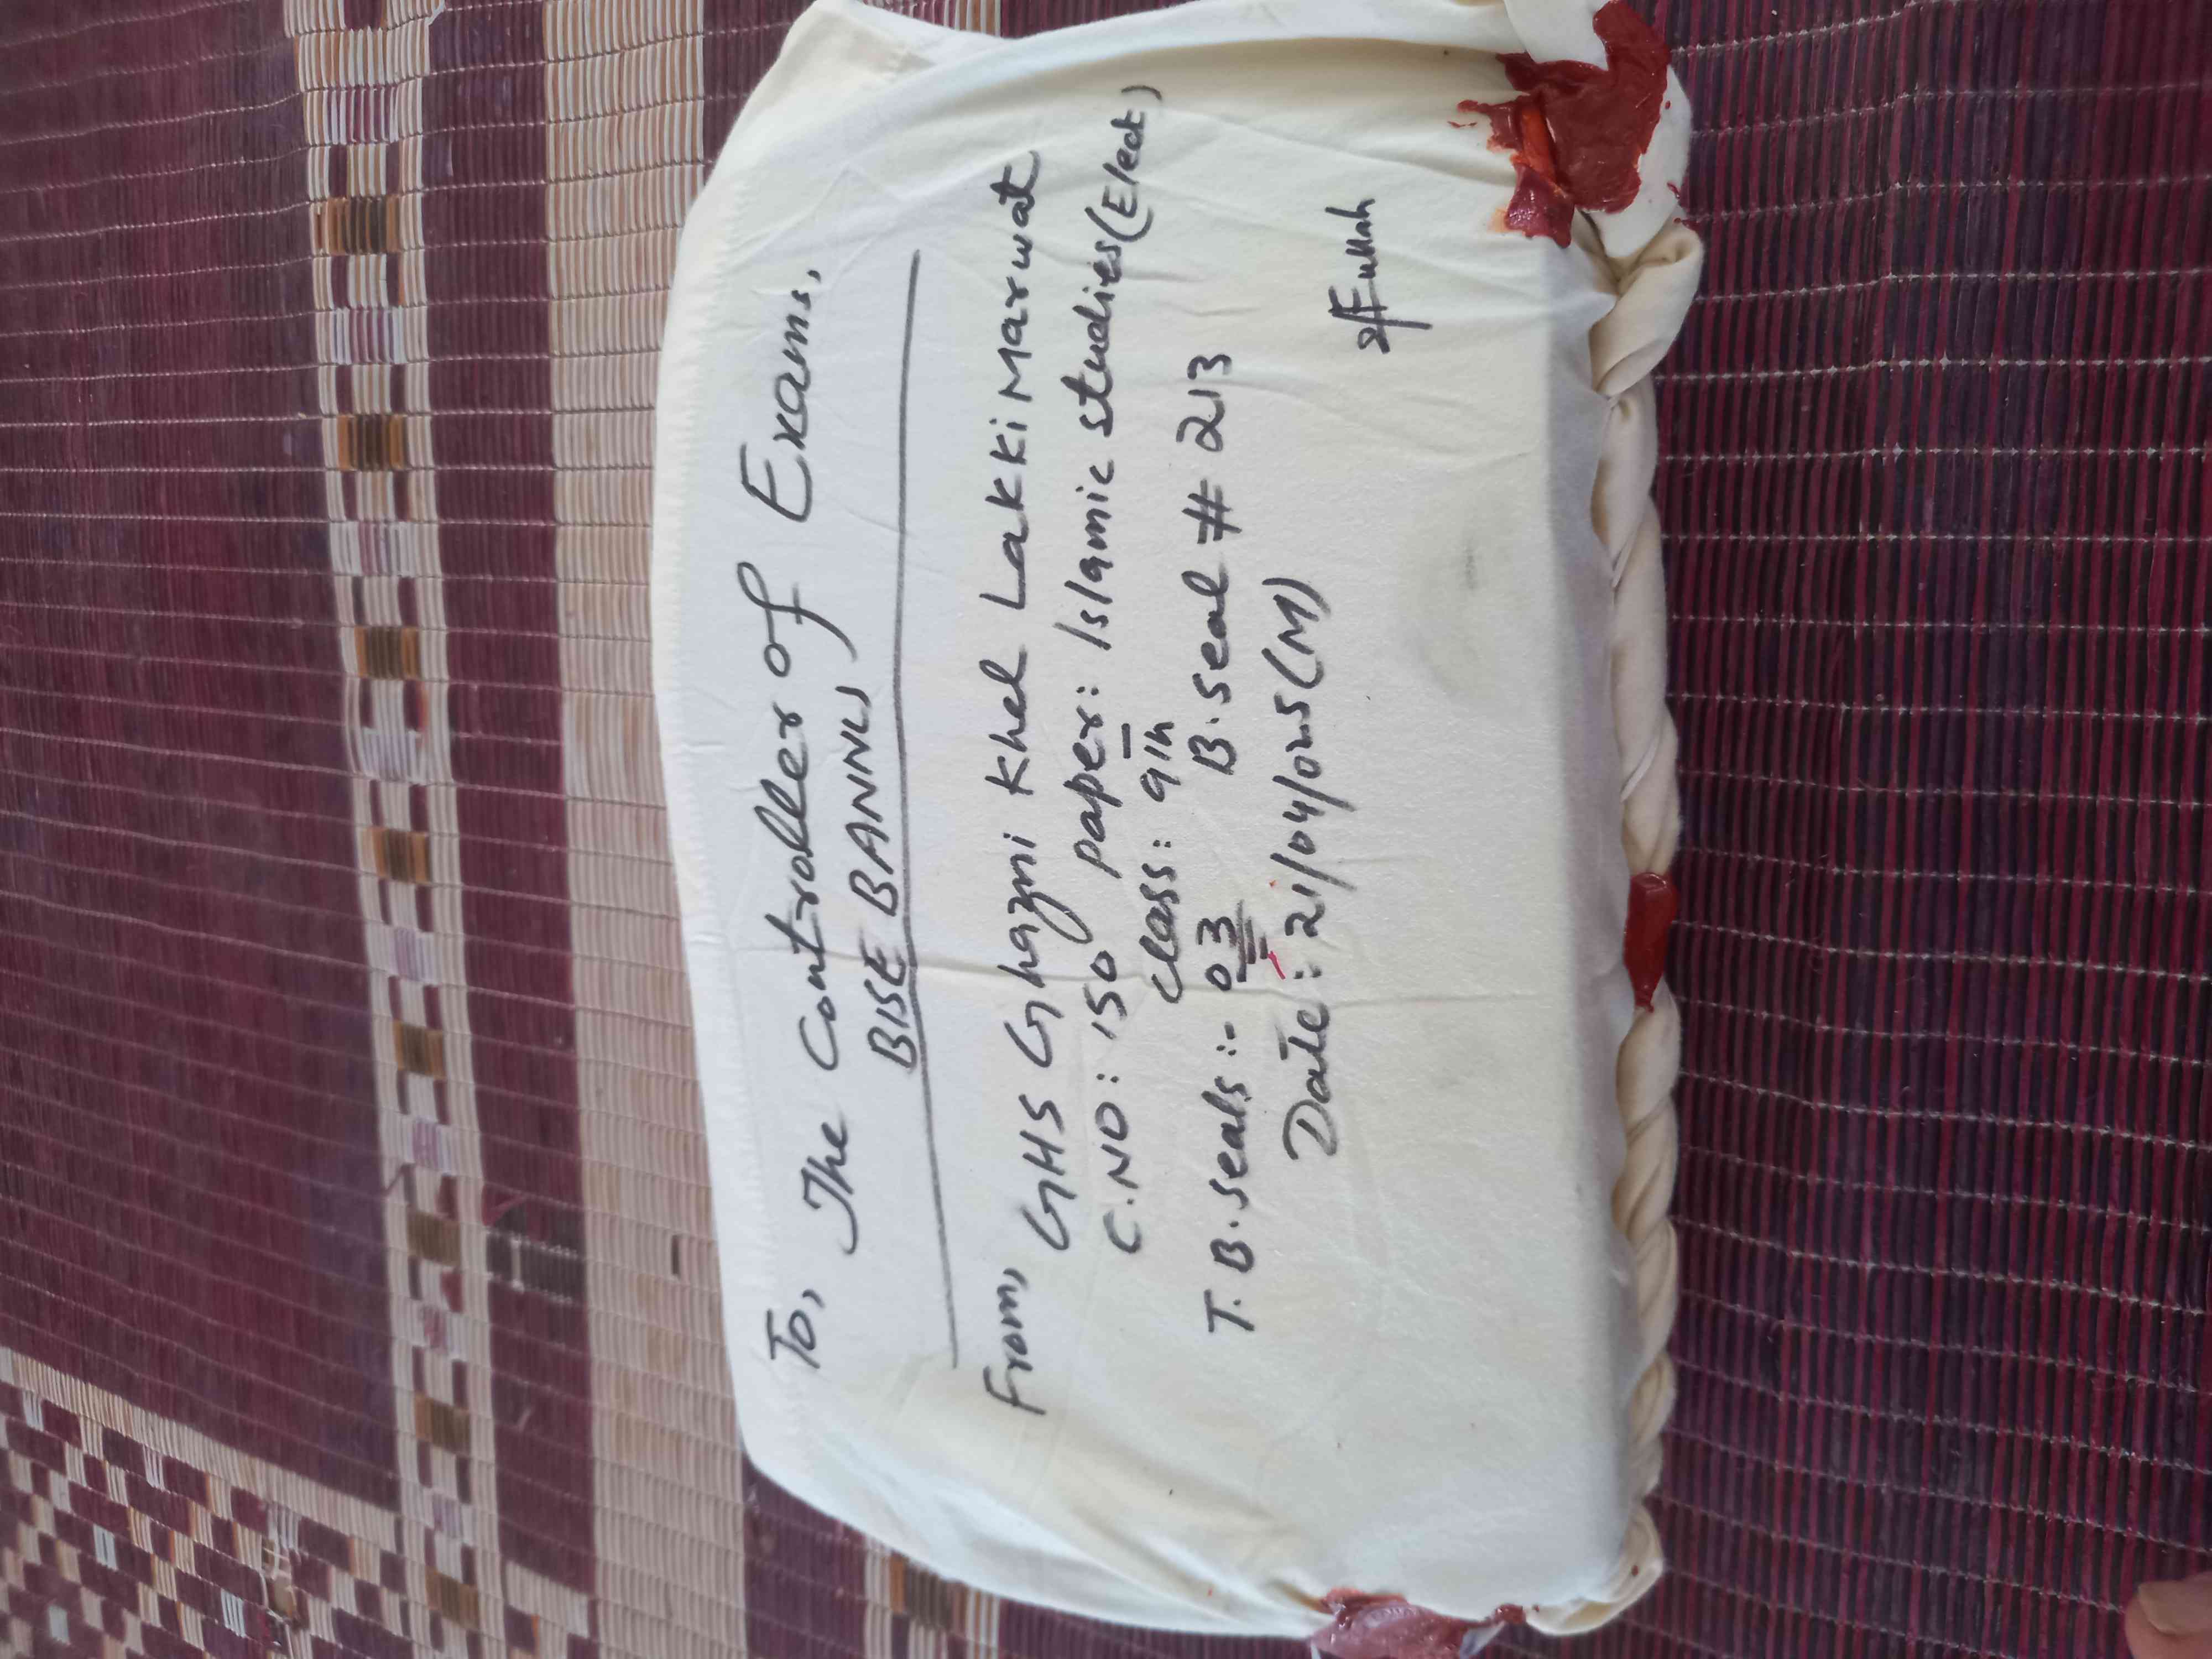 To,
The Controller of Exams,
BISE BANNU,
From,
GHS Ghazni Khel Lakki Marwat
C.NO: 150 paper: Islamic studies(Elect)
class: 9th
T.B.seals:- 03 B.seal # 213
Date: 21/04/025(M)